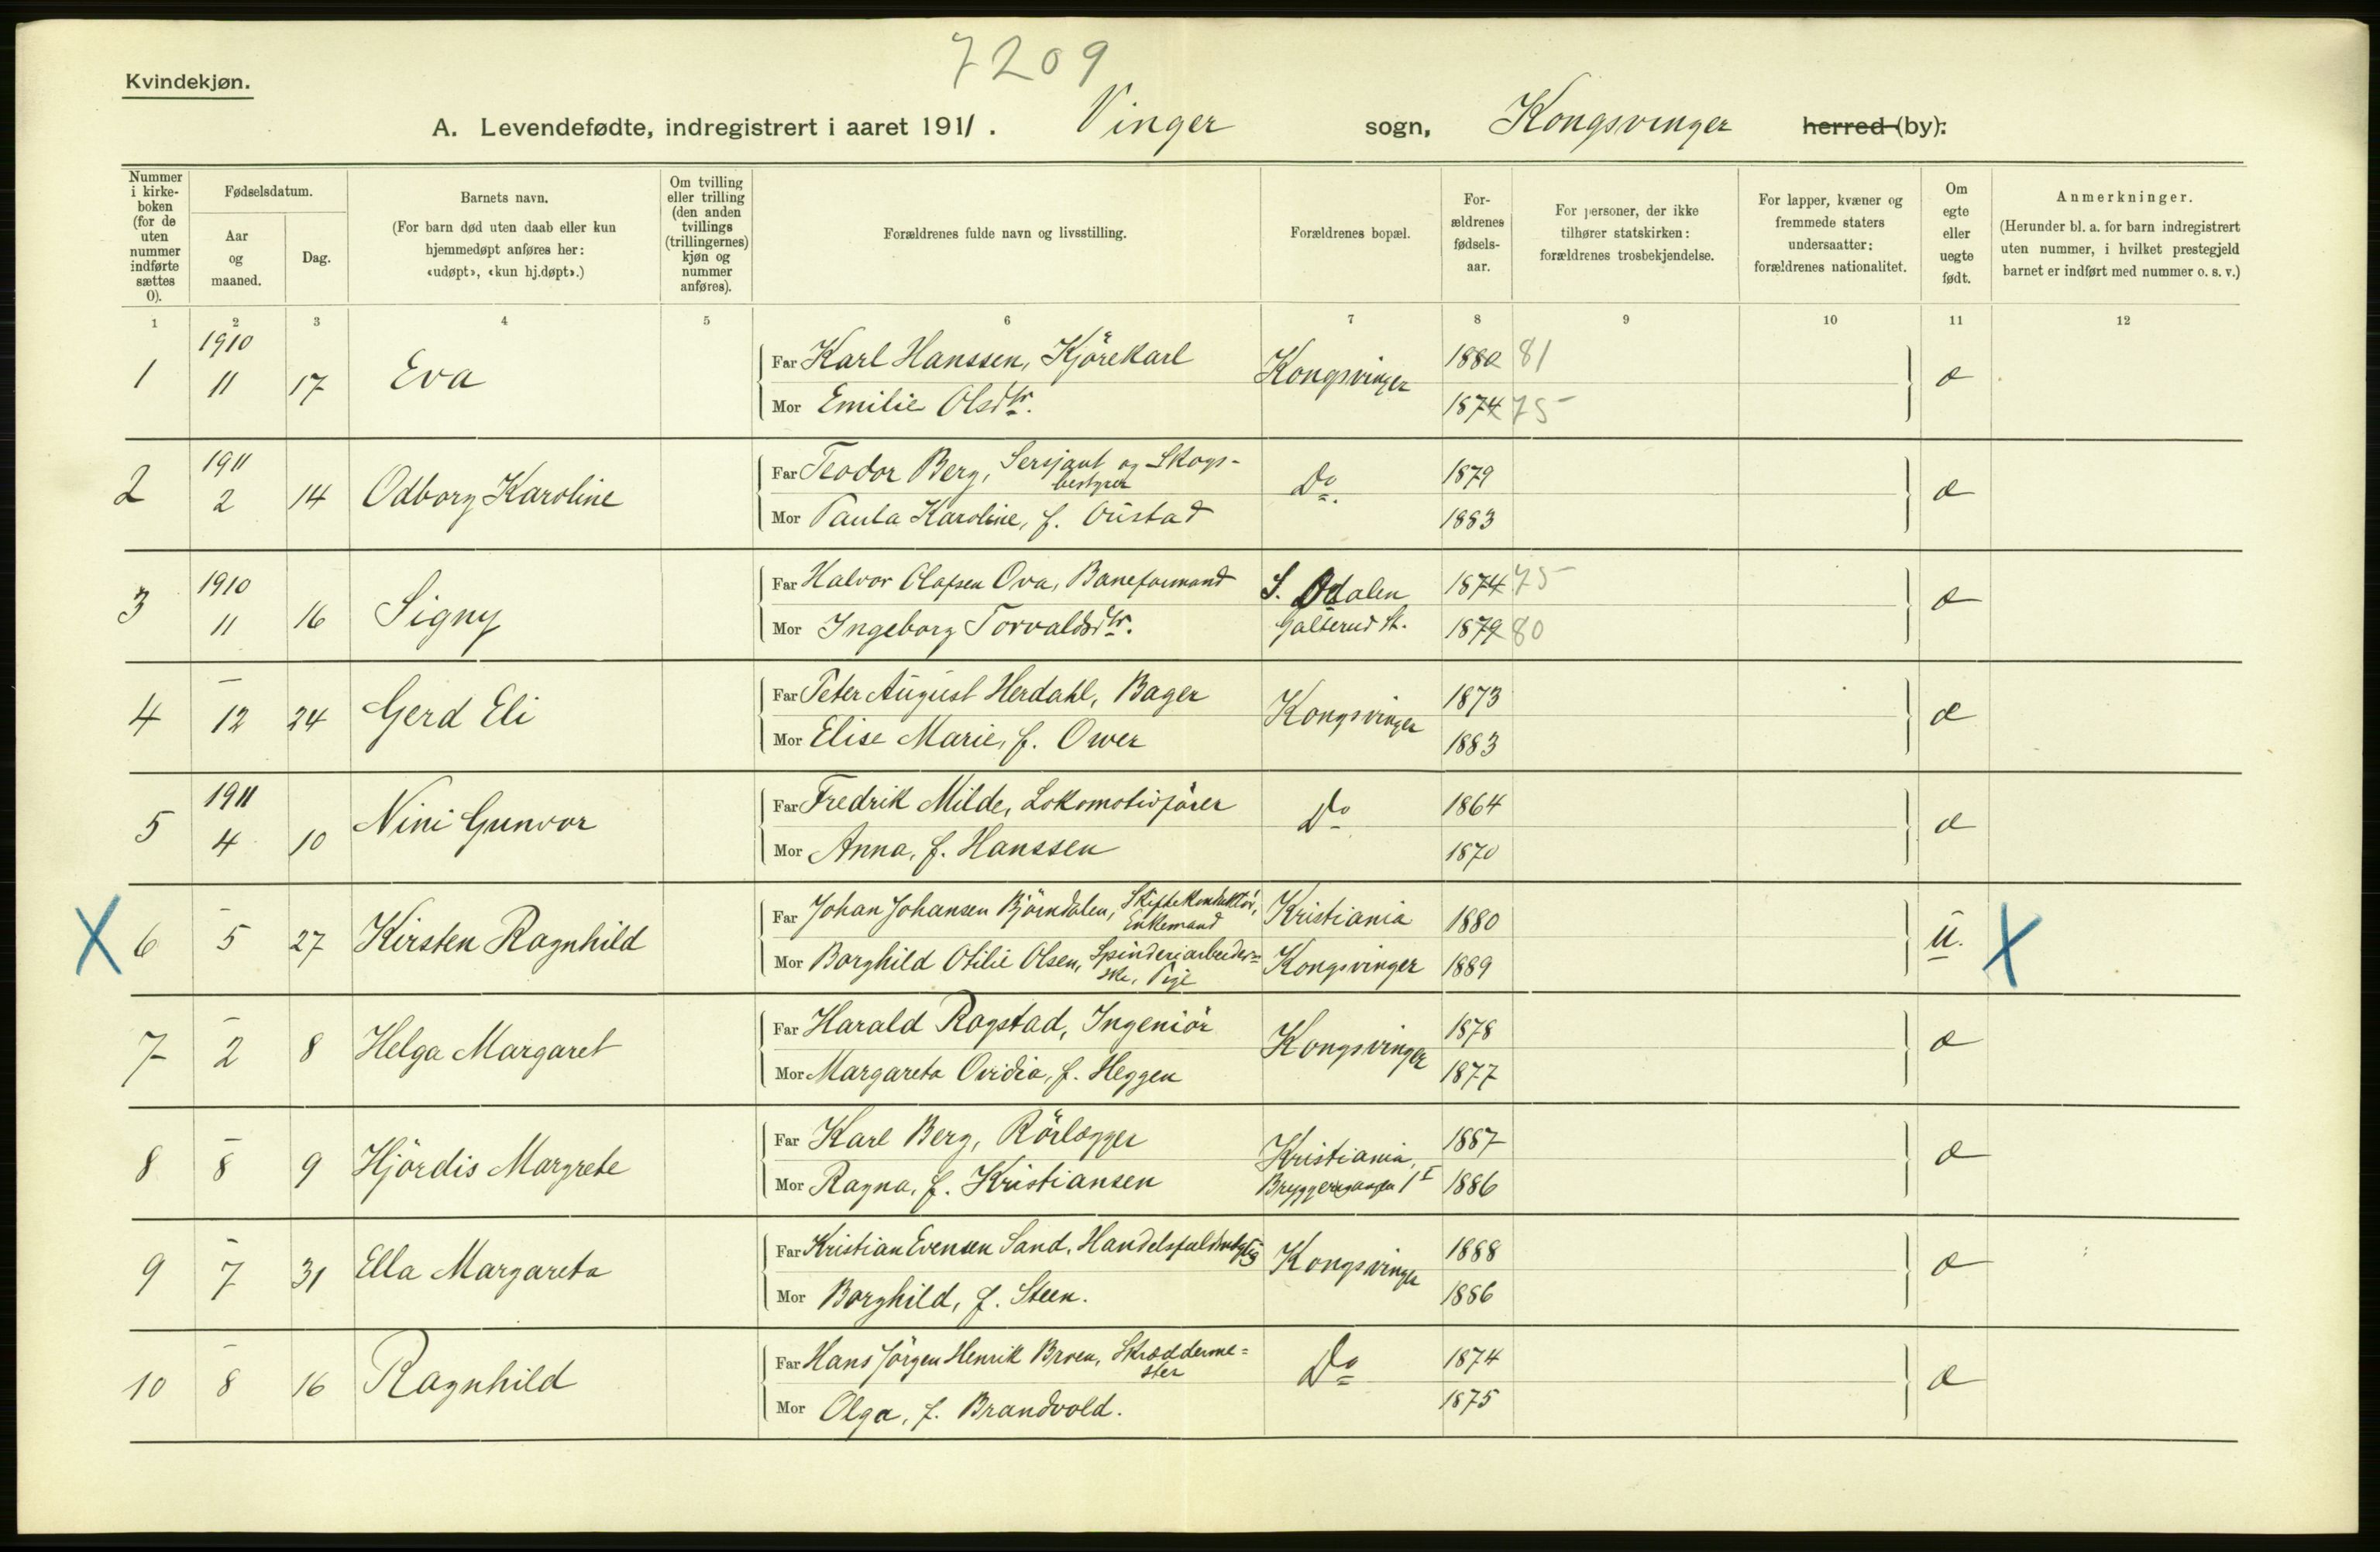 7209
Kvindekjøn.
A. Levendefødte, indregistrert i aaret 1911. Vinger sogn, Kongsvinger herred (by):
Nummer i kirke-boken (for de uten nummer indførte sættes 0).
Fødselsdatum.
Aar og maaned.
Dag.
Barnets navn.
(For barn død uten daab eller kun hjemmedøpt anføres her: «udøpt», «kun hj.døpt».)
Om tvilling eller trilling (den anden tvillings (trillingernes) kjøn og nummer anføres).
Forældrenes fulde navn og livsstilling.
Forældrenes bopæl.
For-ældrenes fødsels-aar.
For personer, der ikke tilhører statskirken: forældrenes trosbekjendelse.
For lapper, kvæner og fremmede staters undersaatter: forældrenes nationalitet.
Om egte eller uegte født.
Anmerkninger.
(Herunder bl. a. for barn indregistrert uten nummer, i hvilket prestegjeld barnet er indført med nummer o. s. v.)
1 2 3 4 5 6 7 8 9 10 11 12
1 1910 11 17 Eva
Far Karl Hanssen, Kjörekarl Kongsvinger 1880 81 e
Mor Emilie Olsdtr. 1874 75
2 1911 2 14 Odborg Karoline
Far Teodor Berg, Sersjant og Skogs-
bestyrer Do. 1879 e
Mor Paula Karoline, f. Oustad 1883
3 1910 11 16 Signy
Far Halvor Olafsen Ova, Baneformand S. Odalen 1874 75 e
Mor Ingeborg Torvaldsdtr. Galterud St. 1879 80
4 – 12 24 Gerd Eli
Far Peter August Herdahl, Bager Kongsvinger 1873 e
Mor Elise Marie, f. Ower 1883
5 1911 4 10 Nini Gunvor
Far Fredrik Milde, Lokomotivfører Do 1864 e
Mor Anna, f. Hanssen 1870
X 6 – 5 27 Kirsten Ragnhild
Far Johan Johansen Björndalen, Skiftekonduktör,
Enkemand Kristiania 1880 u. X
Mor Borghild Otilie Olsen, Spinderiarbeider=
ske, Pige Kongsvinger 1889
7 – 2 8 Helga Margaret
Far Harald Rogstad, Ingeniör Kongsvinger 1878 e
Mor Margareta Ovidia, f. Heggen 1877
8 – 8 9 Hjördis Margrete
Far Karl Berg, Rörlægger Kristiania, 1887 e
Mor Ragna, f. Kristiansen Bryggerigaden 1 I 1886
9 – 7 31 Ella Margareta
Far Kristian Evensen Sand, Handelsfuldmægtig Kongsvinger 1888 e
Mor Borghild, f. Steen. 1886
10 – 8 16 Ragnhild
Far Hans Jörgen Henrik Broen, Skrædderme=
ster Do 1874 e
Mor Olga, f. Brandvold. 1875